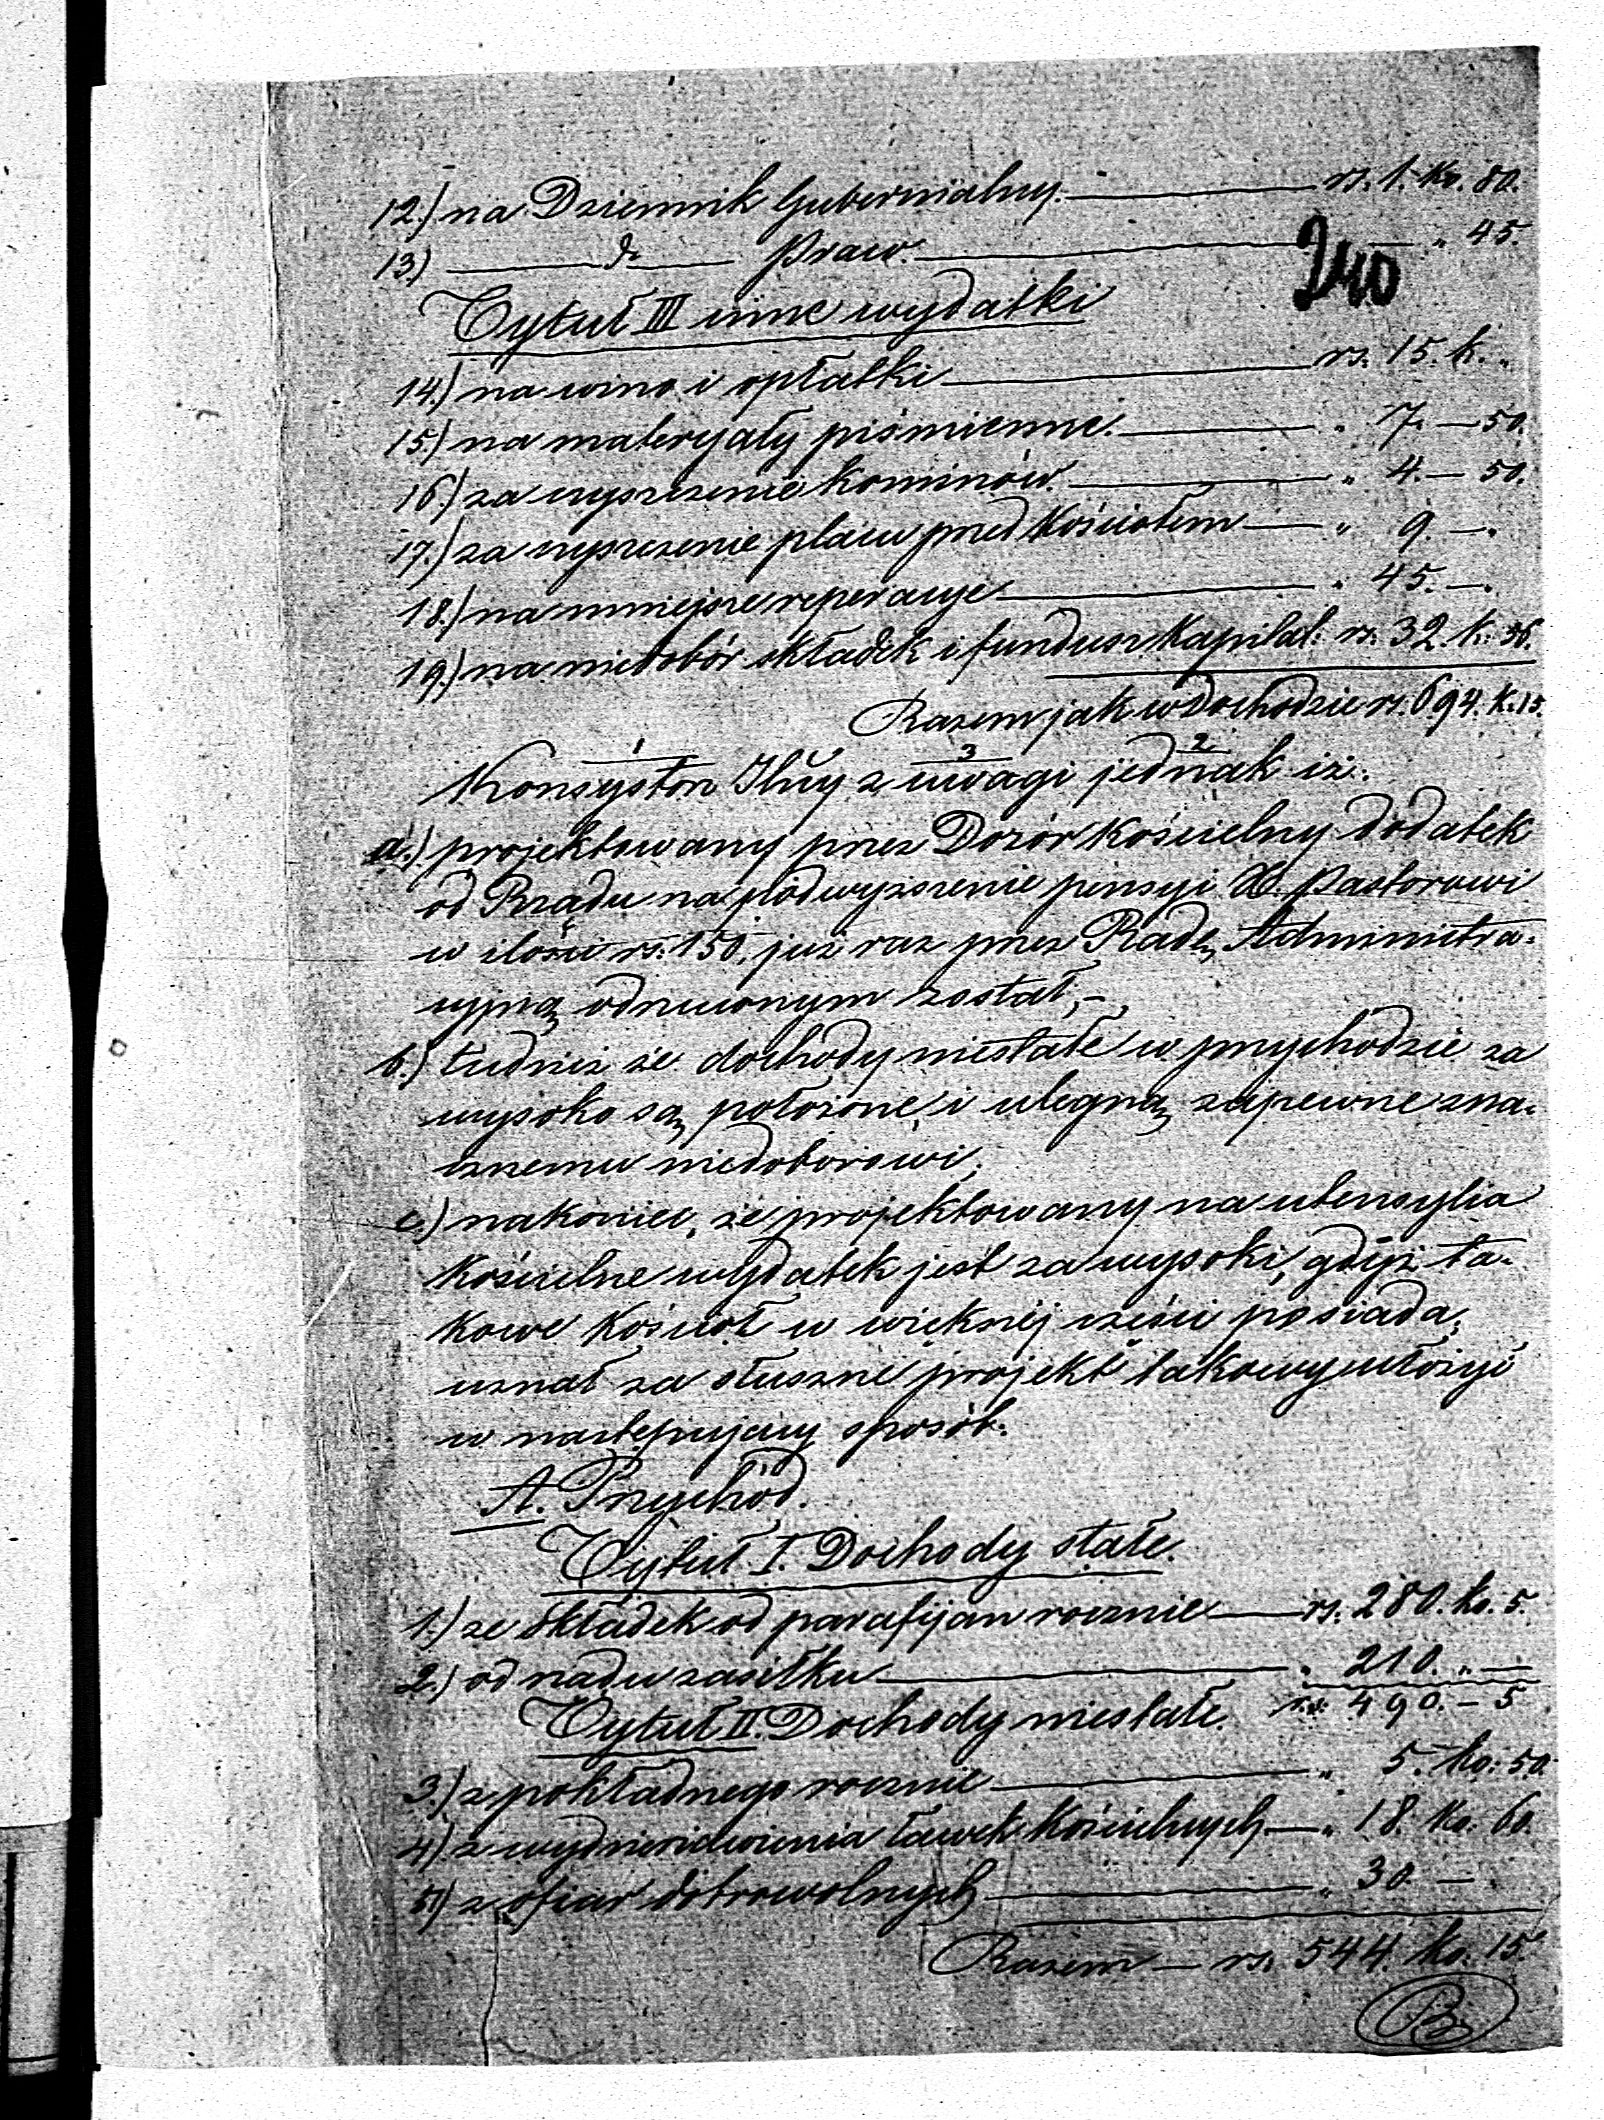 12.) na Dziennik Gubernialny. — rs. 1. Ko. 80.
13.) — do — Praw. — — „ 45.
240
Tytuł III inne wydatki
14.) na wino i opłatki — rs. 15. k. „
15.) na materyały piśmienne. — „ 7. — 50.
16.) za czyszczenie kominów. — „ 4. — 50.
17.) za czyszczenie placu przed Kościołem — „ 9. — „
18.) na mniejsze reperacye — „ 45. — „
19.) na niedobór składek i fundusz Kapitał: rs. 32. k. 56.
Razem jak w Dochodzie rs. 694. k. 15.
1 3 2
Konsystorz Ilny z uwagi jednak iż:
a.) projektowany przez Dozór Kościelny dodatek
od Rządu na podwyższenie pensyi X. Pastorowi
w ilości rs. 150, już raz przez Radę Administra-
cyjną odrzuconym został, –
b.) tudzież że dochody niestałe w przychodzie za
wysoko są położone i ulegną zapewne zna-
cznemu niedoborowi;
c.) nakoniec, że projektowany na utensylia
Kościelne wydatek jest za wysoki, gdyż ta-
kowe Kościół w większéj części posiada;
uznał za słuszne projekt takowy ułożyć
w następujący sposób:
A. Przychód.
Tytuł I. Dochody stałe.
1.) ze składek od parafijan rocznie — rs. 280. ko. 5.
2.) od rządu zasiłku — „ 210. „ —
rs. 490. — 5
Tytuł II. Dochody niestałe.
3.) z pokładnego rocznie — „ 5. ko. 50.
4.) z wydzierżawienia ławek Kościelnych — „ 18. Ko. 60.
5.) z ofiar dobrowolnych — „ 30. — „
Razem — rs. 544. Ko. 15.